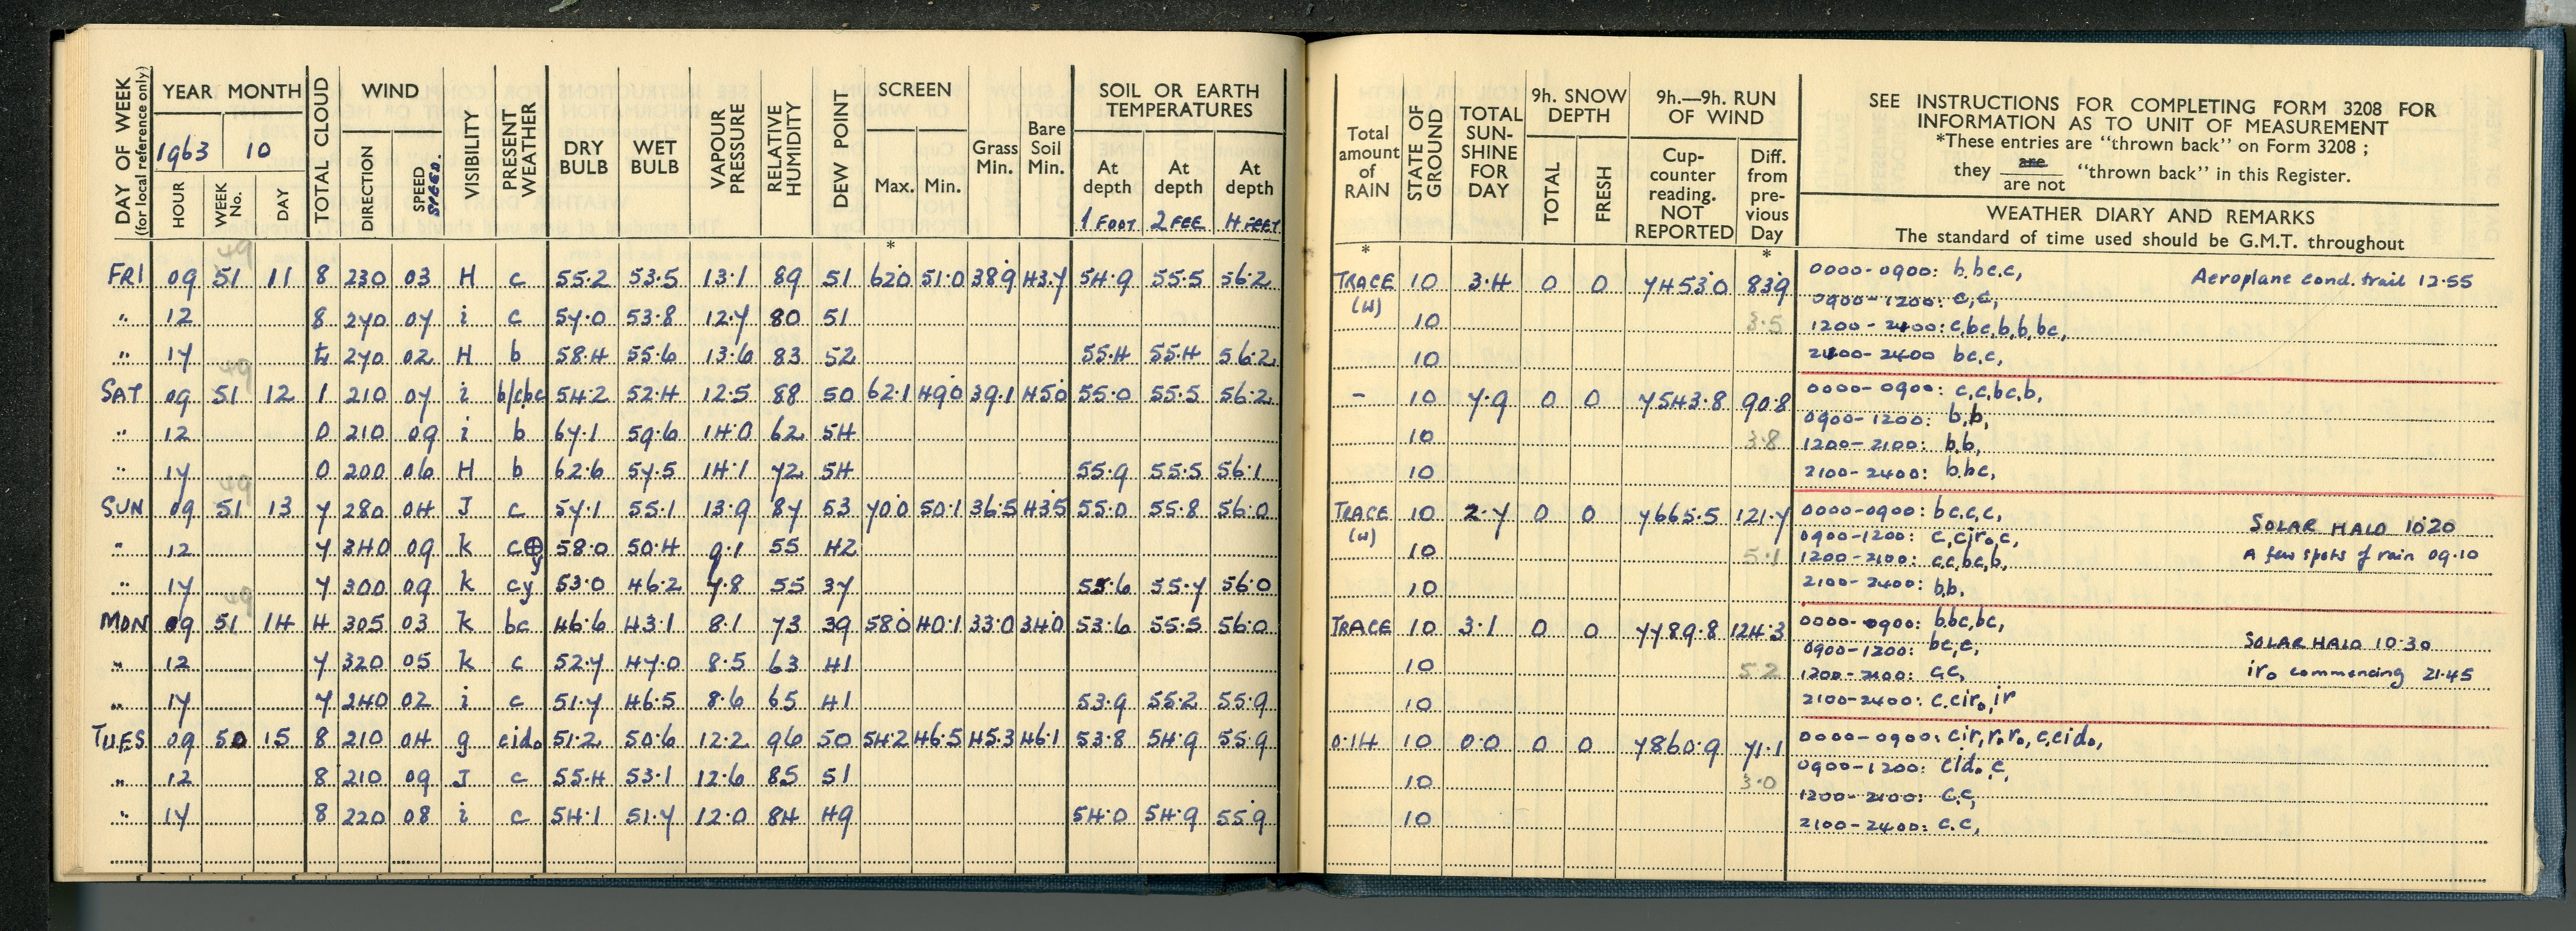 DAY OF WEEK
(for local reference only)
YEAR MONTH
1963 10
HOUR
WEEK No.
DAY
TOTAL CLOUD
WIND
DIRECTION
SPEED
SPEED.
VISIBILITY
PRESENT WEATHER
DRY BULB
WET BULB
VAPOUR PRESSURE
RELATIVE HUMIDITY
DEW POINT
SCREEN
Max. Min.
*
Grass Min.
Bare Soil Min.
SOIL OR EARTH TEMPERATURES
At depth At depth At depth
1 FOOT 2 FEE 4 FEET
FRI 09 51 11 8 230 03 H c 55.2 53.5 13.1 89 51 62.0 51.0 38.9 43.7 54.9 55.5 56.2
" 12 8 270 07 i c 57.0 53.8 12.7 80 51
" 17 270 02 H b 58.4 55.6 13.6 83 52 55.4 55.4 56.2
49
SAT 09 51 12 1 210 07 i b/cbc 54.2 52.4 12.5 88 50 62.1 49.0 39.1 45.0 55.0 55.5 56.2
" 12 0 210 09 i b 67.1 59.6 14.0 62 54
" 17 0 200 06 H b 62.6 57.5 14.1 72 54 55.9 55.5 56.1
49
SUN 09 51 13 7 280 04 J c 57.1 55.1 13.9 87 53 70.0 50.1 36.5 43.5 55.0 55.8 56.0
" 12 7 340 09 k c⊕y 58.0 50.4 9.1 55 42
" 17 7 300 09 k cy 53.0 46.2 7.8 55 37 55.6 55.7 56.0
49
MON 09 51 14 4 305 03 k bc 46.6 43.1 8.1 73 39 58.0 40.1 33.0 34.0 53.6 55.5 56.0
" 12 7 320 05 k c 52.7 47.0 8.5 63 41
" 17 7 240 02 i c 51.7 46.5 8.6 65 41 53.9 55.2 55.9
TUES 09 50 15 8 210 04 g cido 51.2 50.6 12.2 96 50 54.2 46.5 45.3 46.1 53.8 54.9 55.9
" 12 8 210 09 J c 55.4 53.1 12.6 85 51
" 17 8 220 08 i c 54.1 51.7 12.0 84 49 54.0 54.9 55.9
Total amount of RAIN
*
STATE OF GROUND
TOTAL SUN-SHINE FOR DAY
9h. SNOW DEPTH
TOTAL
FRESH
9h.—9h. RUN OF WIND
Cup-counter reading. NOT REPORTED
Diff. from pre-vious Day
*
SEE INSTRUCTIONS FOR COMPLETING FORM 3208 FOR
INFORMATION AS TO UNIT OF MEASUREMENT
*These entries are "thrown back" on Form 3208 ;
they are / are not "thrown back" in this Register.
WEATHER DIARY AND REMARKS
The standard of time used should be G.M.T. throughout
TRACE 10 3.4 0 0 7453.0 83.9 0000-0900: b.bc.c, Aeroplane cond. trail 12.55
(w) 0900-1200: c,c,
10 3.5 1200-2400: c,bc,b,b,bc,
10 2100-2400 bc.c,
- 10 7.9 0 0 7543.8 90.8 0000-0900: c,c,bc,b,
0900-1200: b,b,
10 3.8 1200-2100: b.b,
10 2100-2400: b.bc,
TRACE 10 2.7 0 0 7665.5 121.7 0000-0900: bc.c,c, SOLAR HALO 10.20
(w) 0900-1200: c,ciro,c,
10 5.1 1200-2100: c.c,bc,b, A few spots of rain 09.10
10 2100-2400: b.b.
TRACE 10 3.1 0 0 7789.8 124.3 0000-0900: b.bc,bc, SOLAR HALO 10.30
0900-1200: bc,c,
10 5.2 1200-2100: c.c, iro commencing 21.45
10 2100-2400: c.ciro,ir
0.14 10 0.0 0 0 7860.9 71.1 0000-0900: cir,r.ro,c,cido,
0900-1200: cido,c,
10 3.0 1200-2100: c.c,
10 2100-2400: c.c,